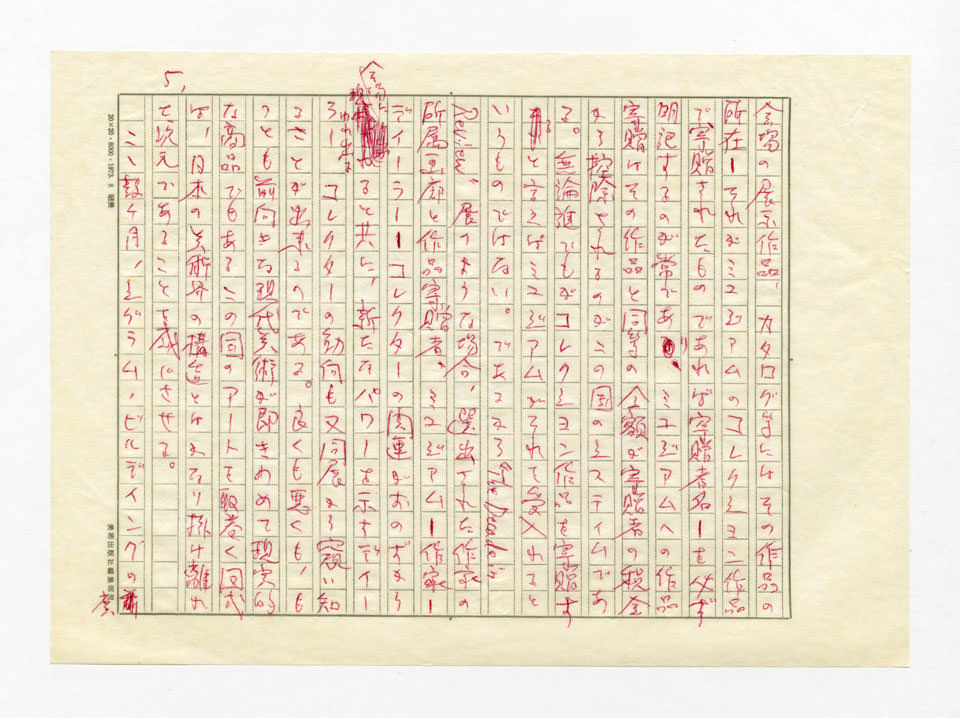 会場の展示作品、カタログ等にはその作品の
所在ーそれがミュージアムのコレクション作品
で寄贈されたものであれば寄贈者名ーを必ず
明記するのが常であり、ミュージアムへの作品
寄贈はその作品と同等の金額が寄贈者の税金
から控除されるのがこの国のシステムであ
る。無論誰でもがコレクション作品を寄贈す
ると言えばミュージアムがそれを受入れると
いうものではない。であるから "The Decade in
Review" 展のような場合、選出された作家の
所属画廊と作品寄贈者、ミュージアムー作家ー
ディーラーーコレクターの関連がおのずから
ると共に、新たなパワーを示すディー
ラー コレクターの動向も又同展から窺い知
ることが出来るのである。良くも悪くも、も
っとも前向きな現代美術が即きわめて現実的
な商品でもあるこの国のアートを取巻く図式
は、日本の美術界の構造とはかなり掛け離れ
た次元であることを感じさせる。
ここ数ヶ月、シグラム・ビルディングの
5,
20×20・8000・1973. 8
美術出版社編集部用